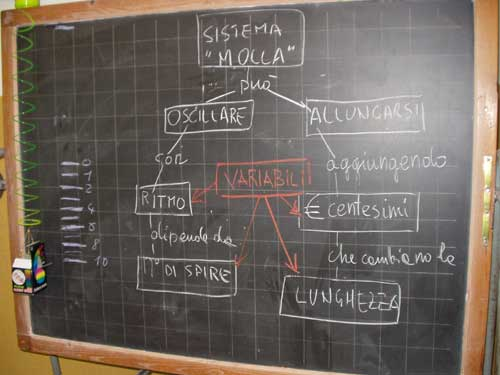 SISTEMA
"MOLLA"
... può
OSCILLARE
ALLUNGARSI
con
aggiungendo
VARIABILI
RITMO
€ centesimi
dipende da
che cambiano la
N° DI SPIRE
LUNGHEZZA
0
1
2
4
5
8
10